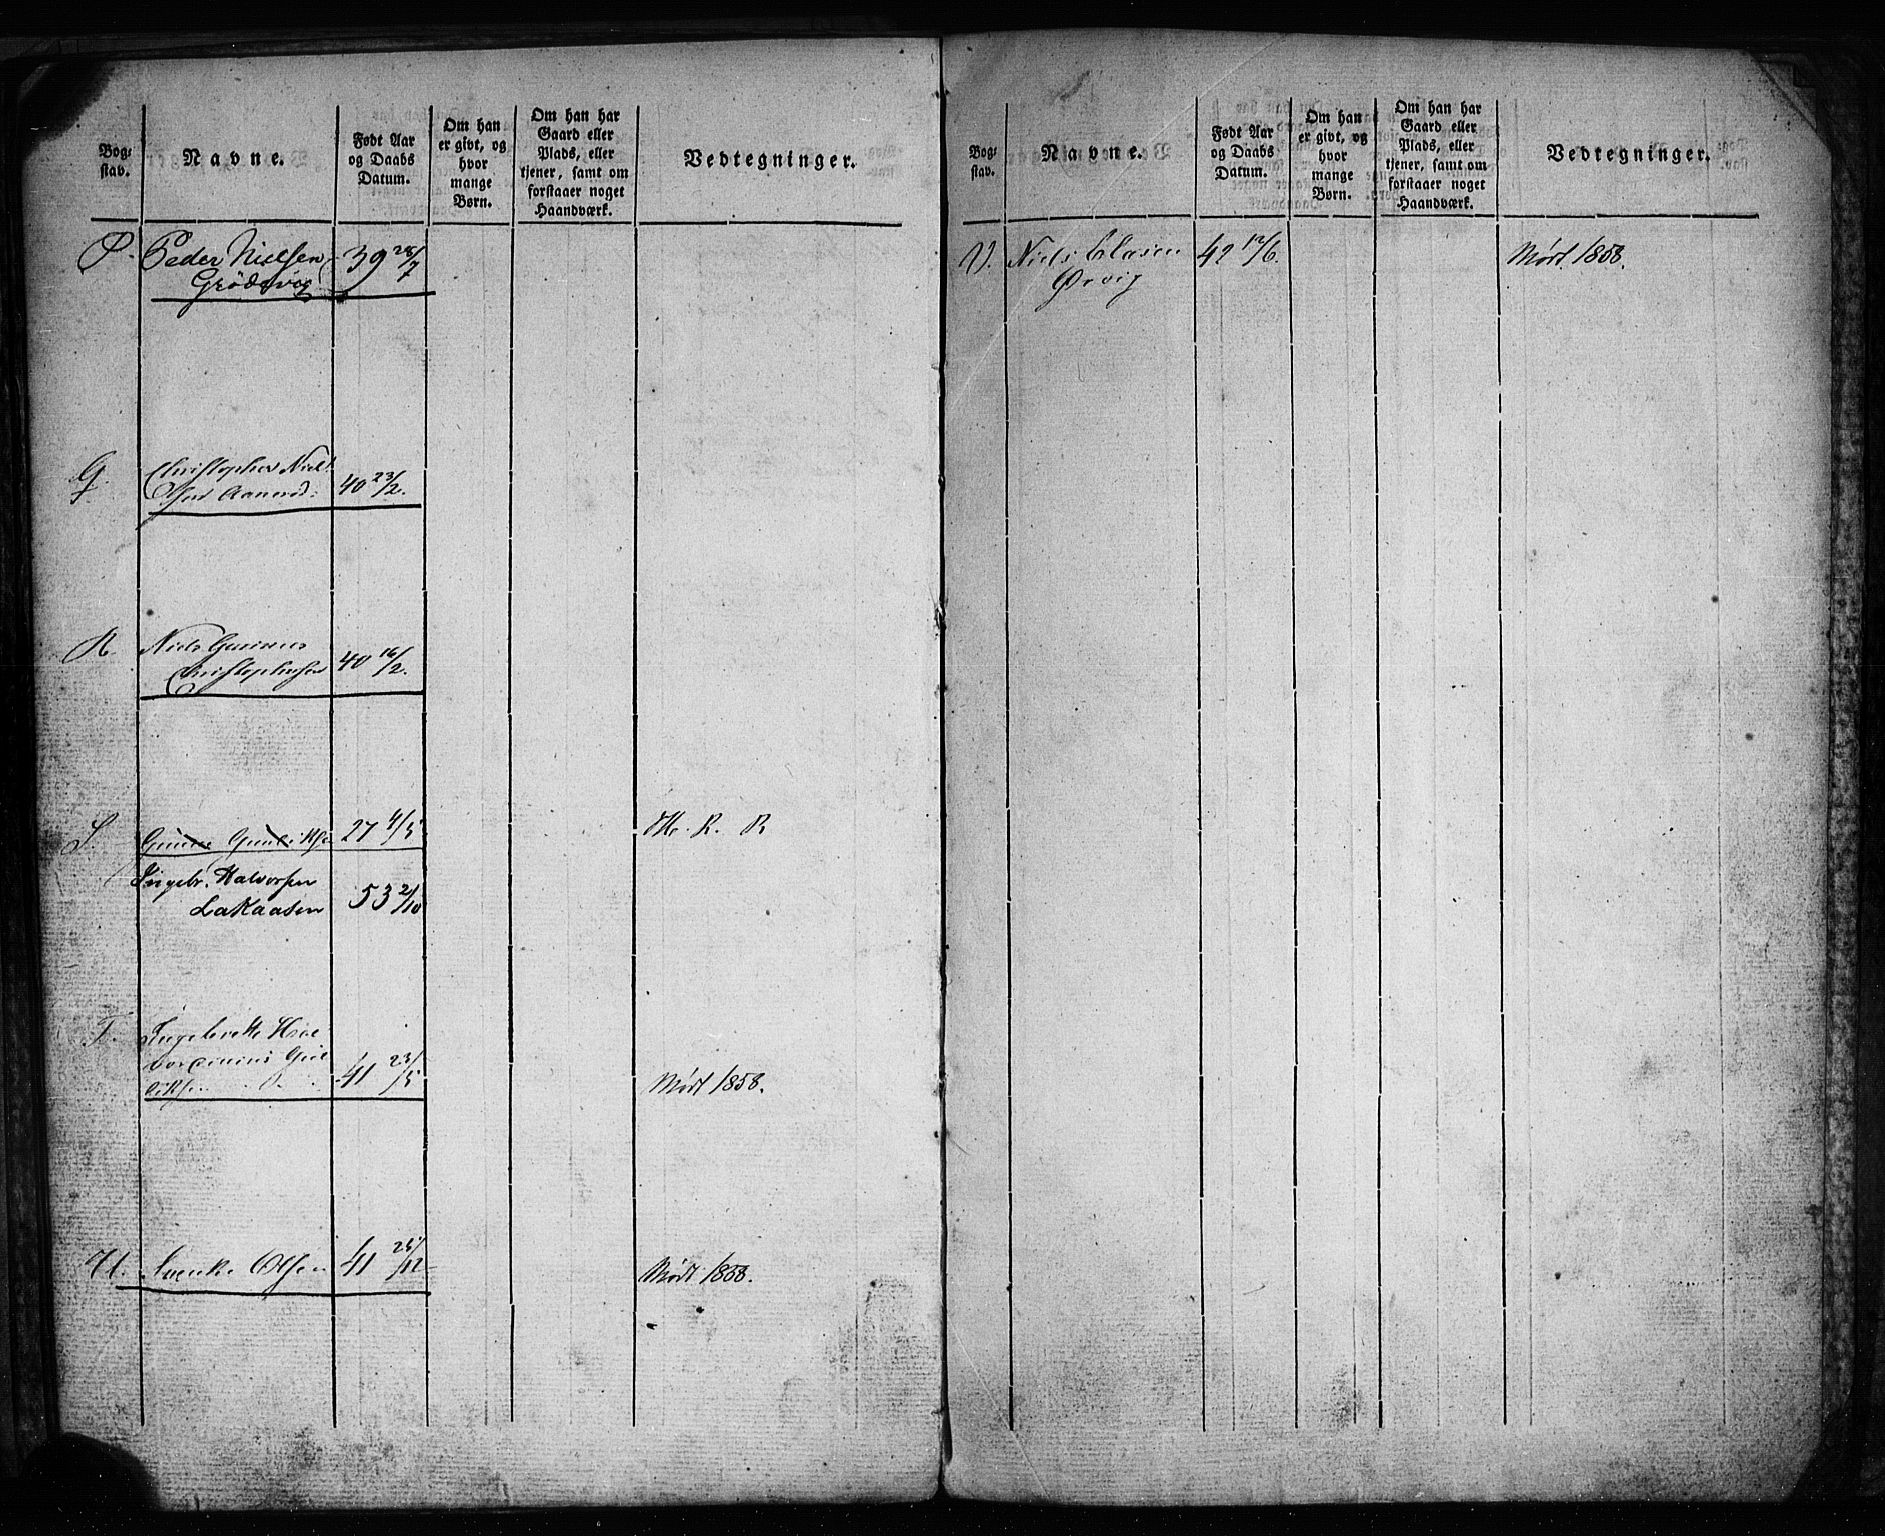 Bog-
stav.
Navne.
Født Aar
og Daabs
Datum.
Om han
er givt, og
hvor
mange
Børn.
Om han har
Gaard eller
Plads, eller
tjener, samt om
forstaaer noget
Haandværk.
Vedtegninger.
P. Peder Nielsen 39 26/7
Grødsvig
Christopher Niel-
sen 40 23/2.
R. Niels Gunnus
Christophersen 40 16/2.
S. Gunne Gundersen 27 4/5 H. R. R
Ingebr. Halvorsen
Lakaasen 53 2/10
T. Ingebrekte Hal
41 23/5 Mødt 1858.
U. Svenke Olsen 41 25/12 Mødt 1858.
Bog-
stav.
Navne.
Født Aar
og Daabs
Datum.
Om han
er givt, og
hvor
mange
Børn.
Om han har
Gaard eller
Plads, eller
tjener, samt om
forstaaer noget
Haandværk.
Vedtegninger.
V. Niels Clasen 42 12/6. Mødt 1858.
Ørvig